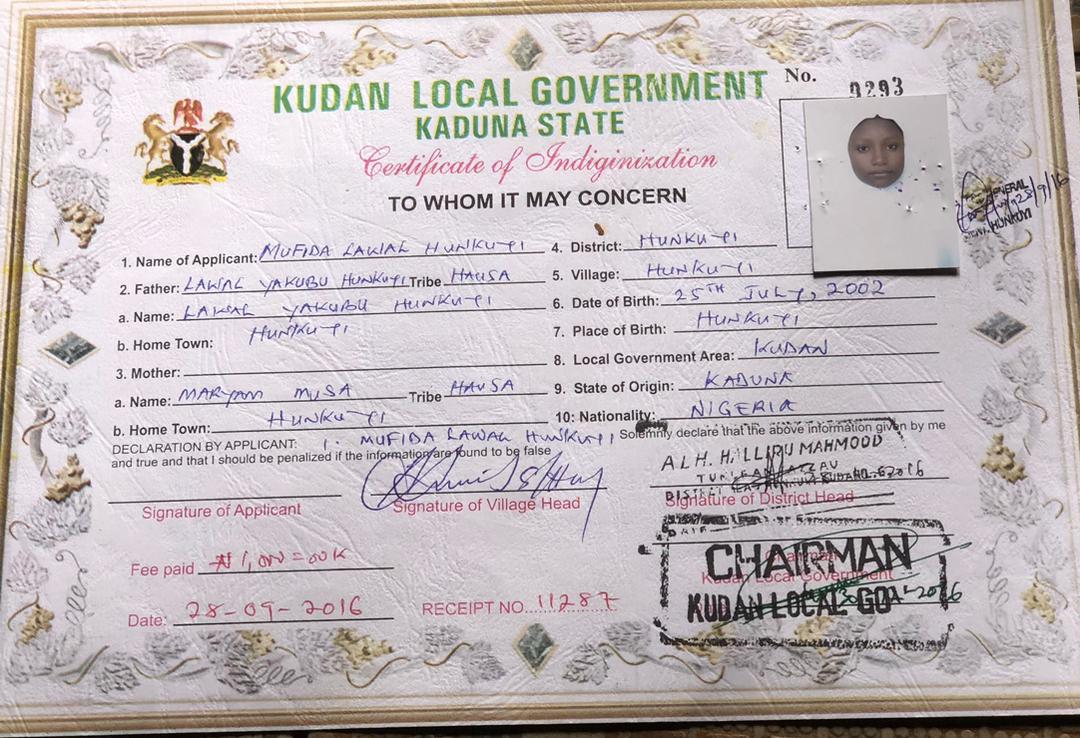 KUDAN LOCAL GOVERNMENT
No. 0293
KADUNA STATE
Certificate of Indiginization
TO WHOM IT MAY CONCERN
1. Name of Applicant: MUFIDA LAWAL HUNKUYI
2. Father: LAWAL YAKUBU HUNKUYI Tribe HAUSA
a. Name: LAWAL YAKUBU HUNKUYI
b. Home Town: HUNKUYI
3. Mother:
a. Name: MARYAM MUSA Tribe HAUSA
b. Home Town: HUNKUYI
4. District: HUNKUYI
5. Village: HUNKUYI
6. Date of Birth: 25TH JULY, 2002
7. Place of Birth: HUNKUYI
8. Local Government Area: KUDAN
9. State of Origin: KADUNA
10: Nationality: NIGERIA
HUNKUYI
DECLARATION BY APPLICANT: 1. MUFIDA LAWAL HUNKUYI Solemnly declare that the above information given by me
and true and that I should be penalized if the information are found to be false
ALH. HALLIRU MAHMOOD
Signature of Applicant
Signature of Village Head
Signature of District Head
Fee paid ₦1,000=00K
Date: 28-09-2016
RECEIPT NO. 11287
CHAIRMAN
Kudan Local Government
KUDAN LOCAL GO